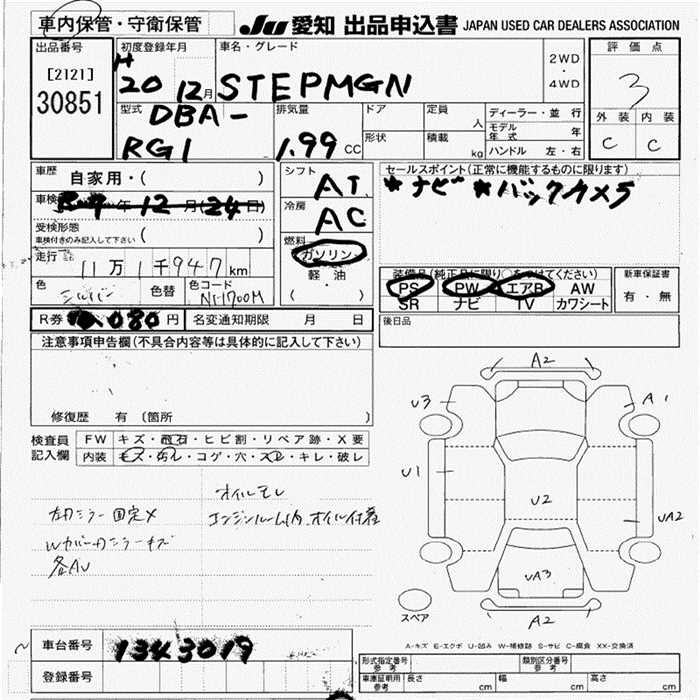 車内保管・守衛保管
JU 愛知 出品申込書 JAPAN USED CAR DEALERS ASSOCIATION
出品番号
[2121]
30851
初度登録年月
H 20 12月
車名・グレード
STEPMGN
2WD
・
4WD
評価点
3
外装 内装
C C
型式
DBA-
RG1
排気量
1.99 CC
ドア
定員
人
形状
積載
kg
ディーラー・並行
モデル年式 年
ハンドル 左・右
車歴
自家用・( )
車検 9年12月(24日)
受検形態
車検付きのみ記入して下さい
( )
走行
11万1千947km
色
シルバー
色替
色コード
NH700M
シフト
AT
冷房
AC
燃料
ガソリン
軽・油
( )
セールスポイント(正常に機能するものに限ります)
*ナビ *バックカメラ
装備品(純正品に限り○をつけてください)
PS PW エアB AW
SR ナビ TV カワシート
新車保証書
有・無
R券 080円
名変通知期限 月 日
後日品
注意事項申告欄(不具合内容等は具体的に記入して下さい)
修復歴 有 〔箇所 〕
検査員
記入欄
FW キズ・飛石・ヒビ割・リペア跡・X要
内装 キズ・汚レ・コゲ・穴・スレ・キレ・破レ
オイルモレ
左右ミラー固定×
エンジンルーム内、オイル付着
Wカバー右ミラーキズ
各AU
A2
U3
A1
U1
U2
UA2
UA3
A2
スペア
A-キズ E-エクボ U-凹み W-補修跡 S-サビ C-腐食 XX-交換済
車台番号
1343019
登録番号
形式指定番号
参考
類別区分番号
参考
車庫証明用
参考
長さ cm
幅 cm
高さ cm